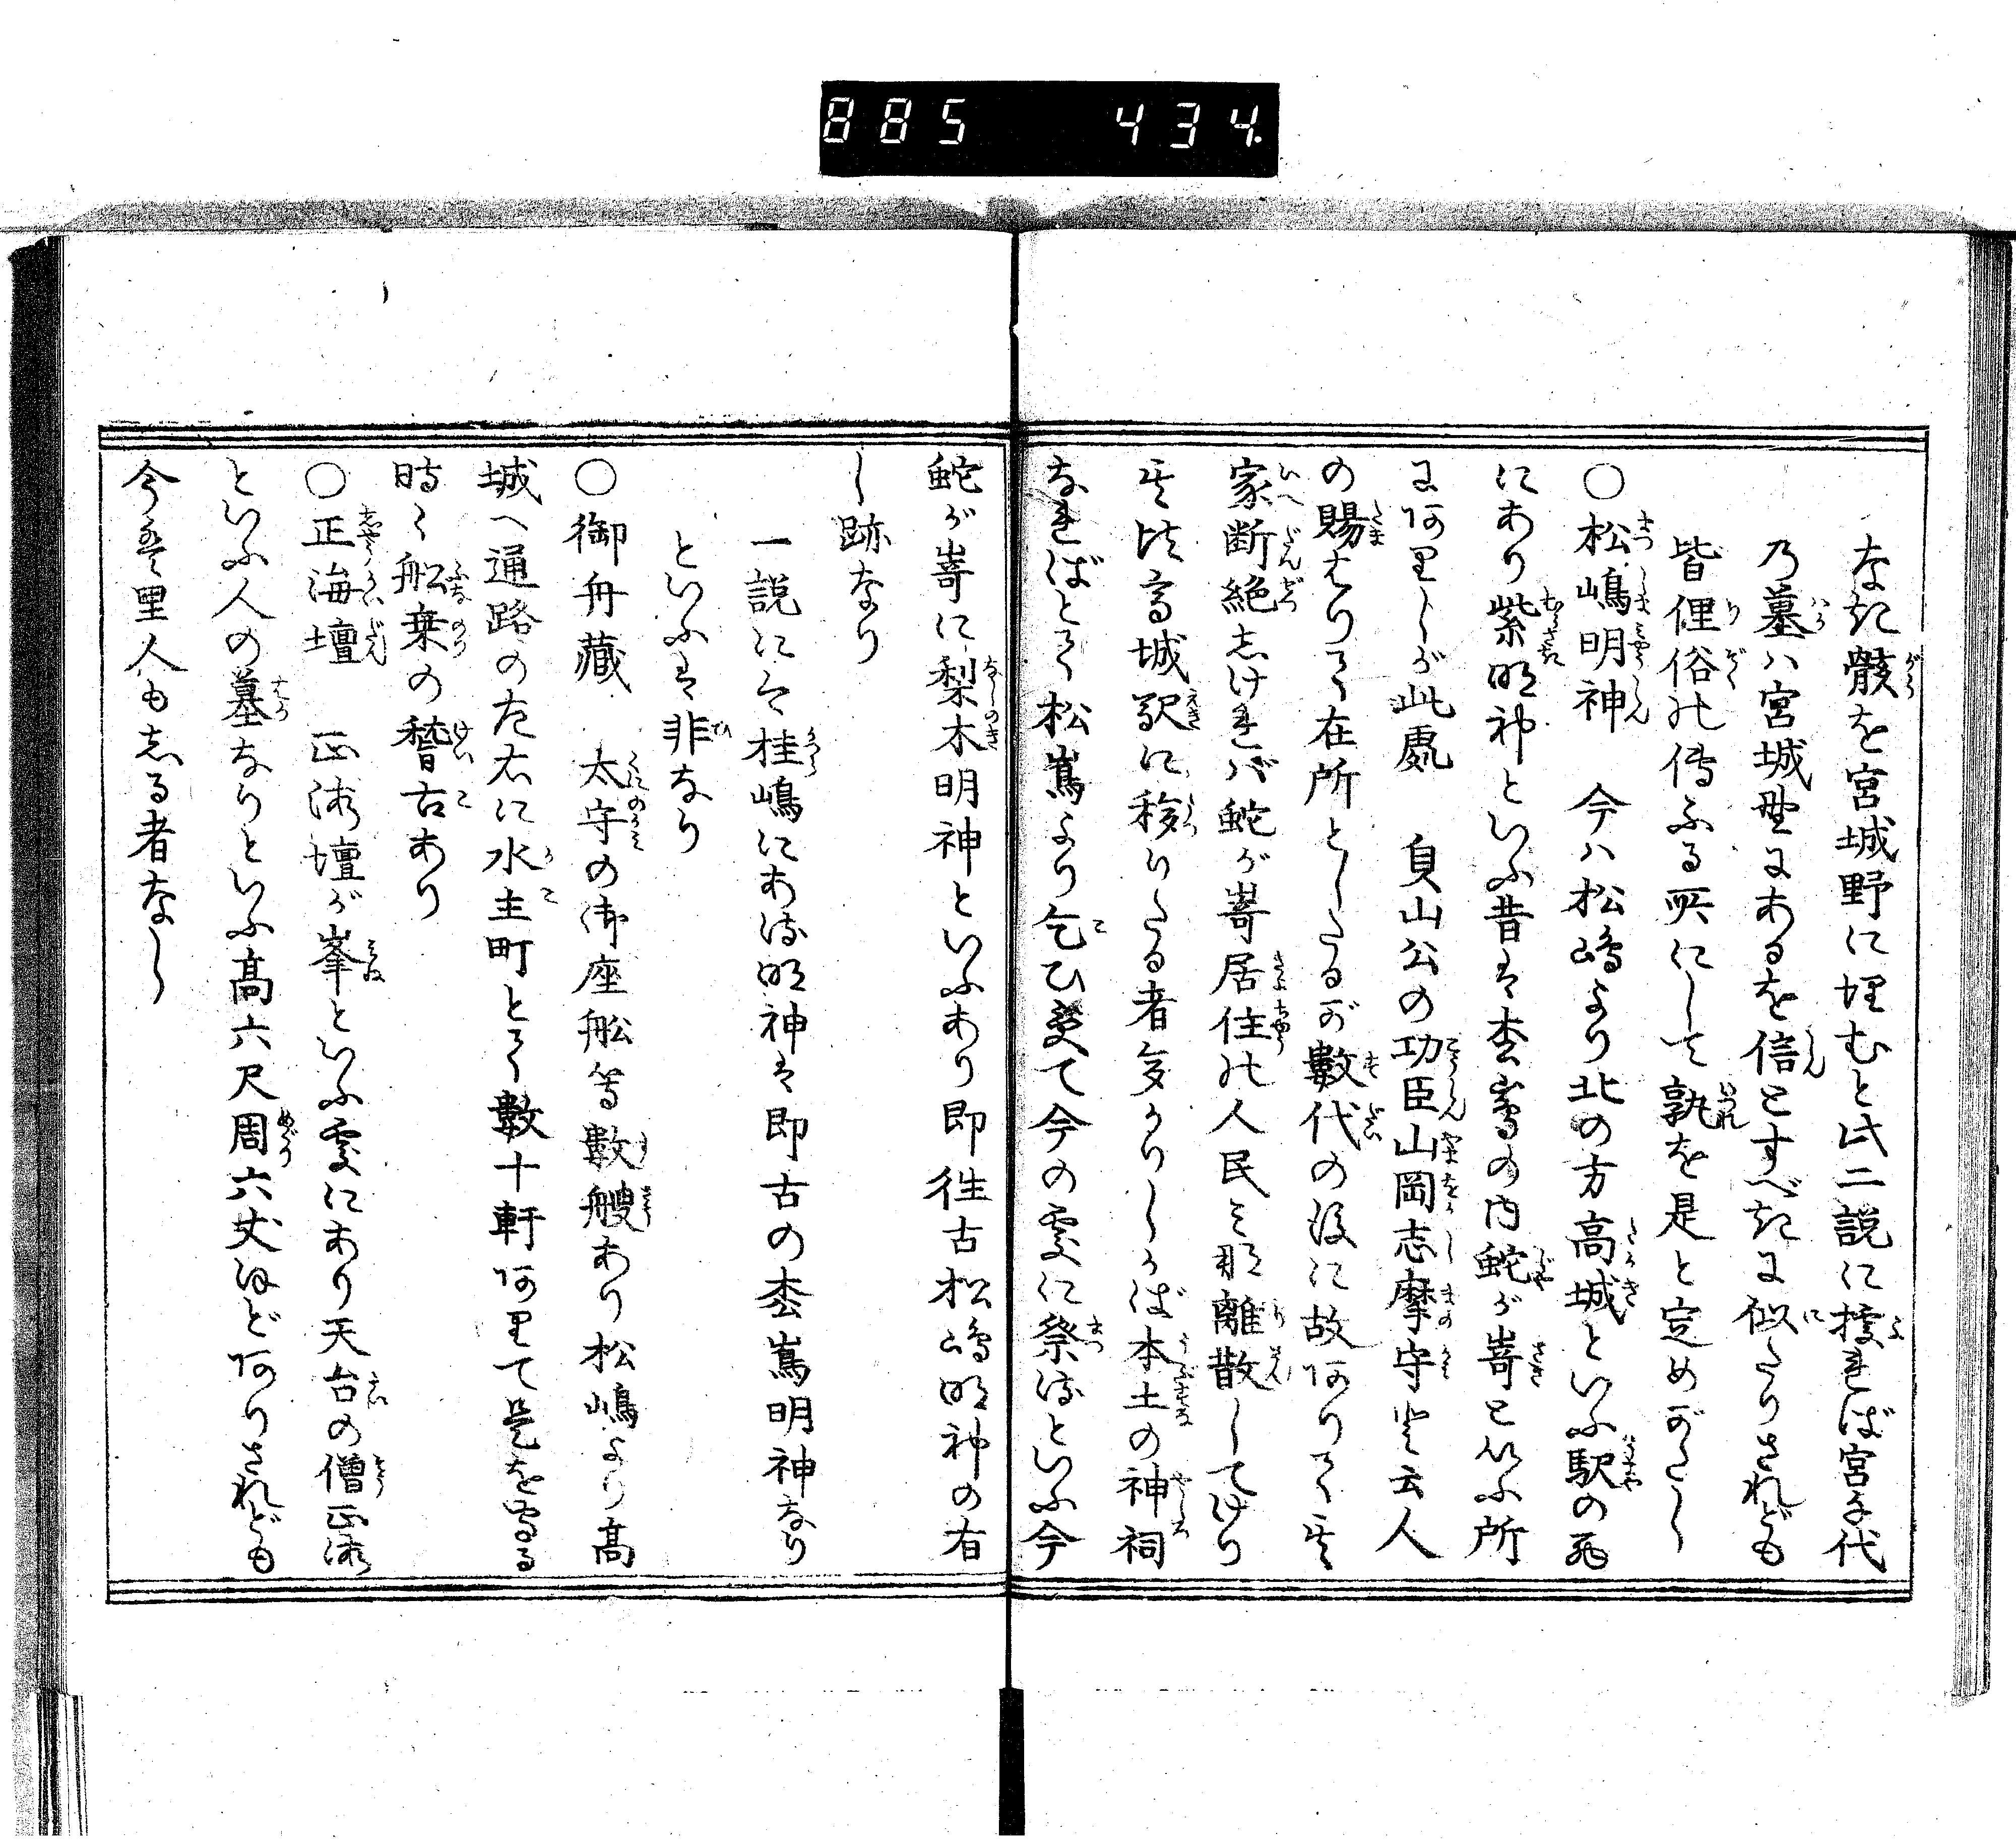 885 434
なき骸を宮城野に埋むと此二説に據れば宮千代
乃墓ハ宮城野にあるを信とすべきに似たりされども
皆俚俗の傳ふる所にして孰を是と定めがたし
〇松嶋明神　今ハ松嶋より北の方高城といふ駅の西
にあり紫明神といふ昔は松嶌の内蛇が嵜といふ所
にありしが此處　貞山公の功臣山岡志摩守と云人
の賜はりて在所としたるが數代の後に故ありて其
家断絶しければ蛇が嵜居住の人民ミな離散してけり
其比高城駅に移りたる者多かりしかば本土の神祠
なればとて松嶌より乞ひ受て今の處に祭るといふ今
蛇が嵜に梨木明神といふあり即往古松嶋明神の有
し跡なり
一説には桂嶋にある明神は即古の松嶌明神なり
といふは非なり
〇御舟藏　太守の御座舩等數艘あり松嶋より高
城へ通路の左右に水主町とて數十軒ありて是を守る
時〻舩乗の稽古あり
〇正海壇　正海壇が峯といふ處にあり天台の僧正海
といふ人の墓なりといふ高六尺周六丈ほどありされども
今は里人もしる者なし